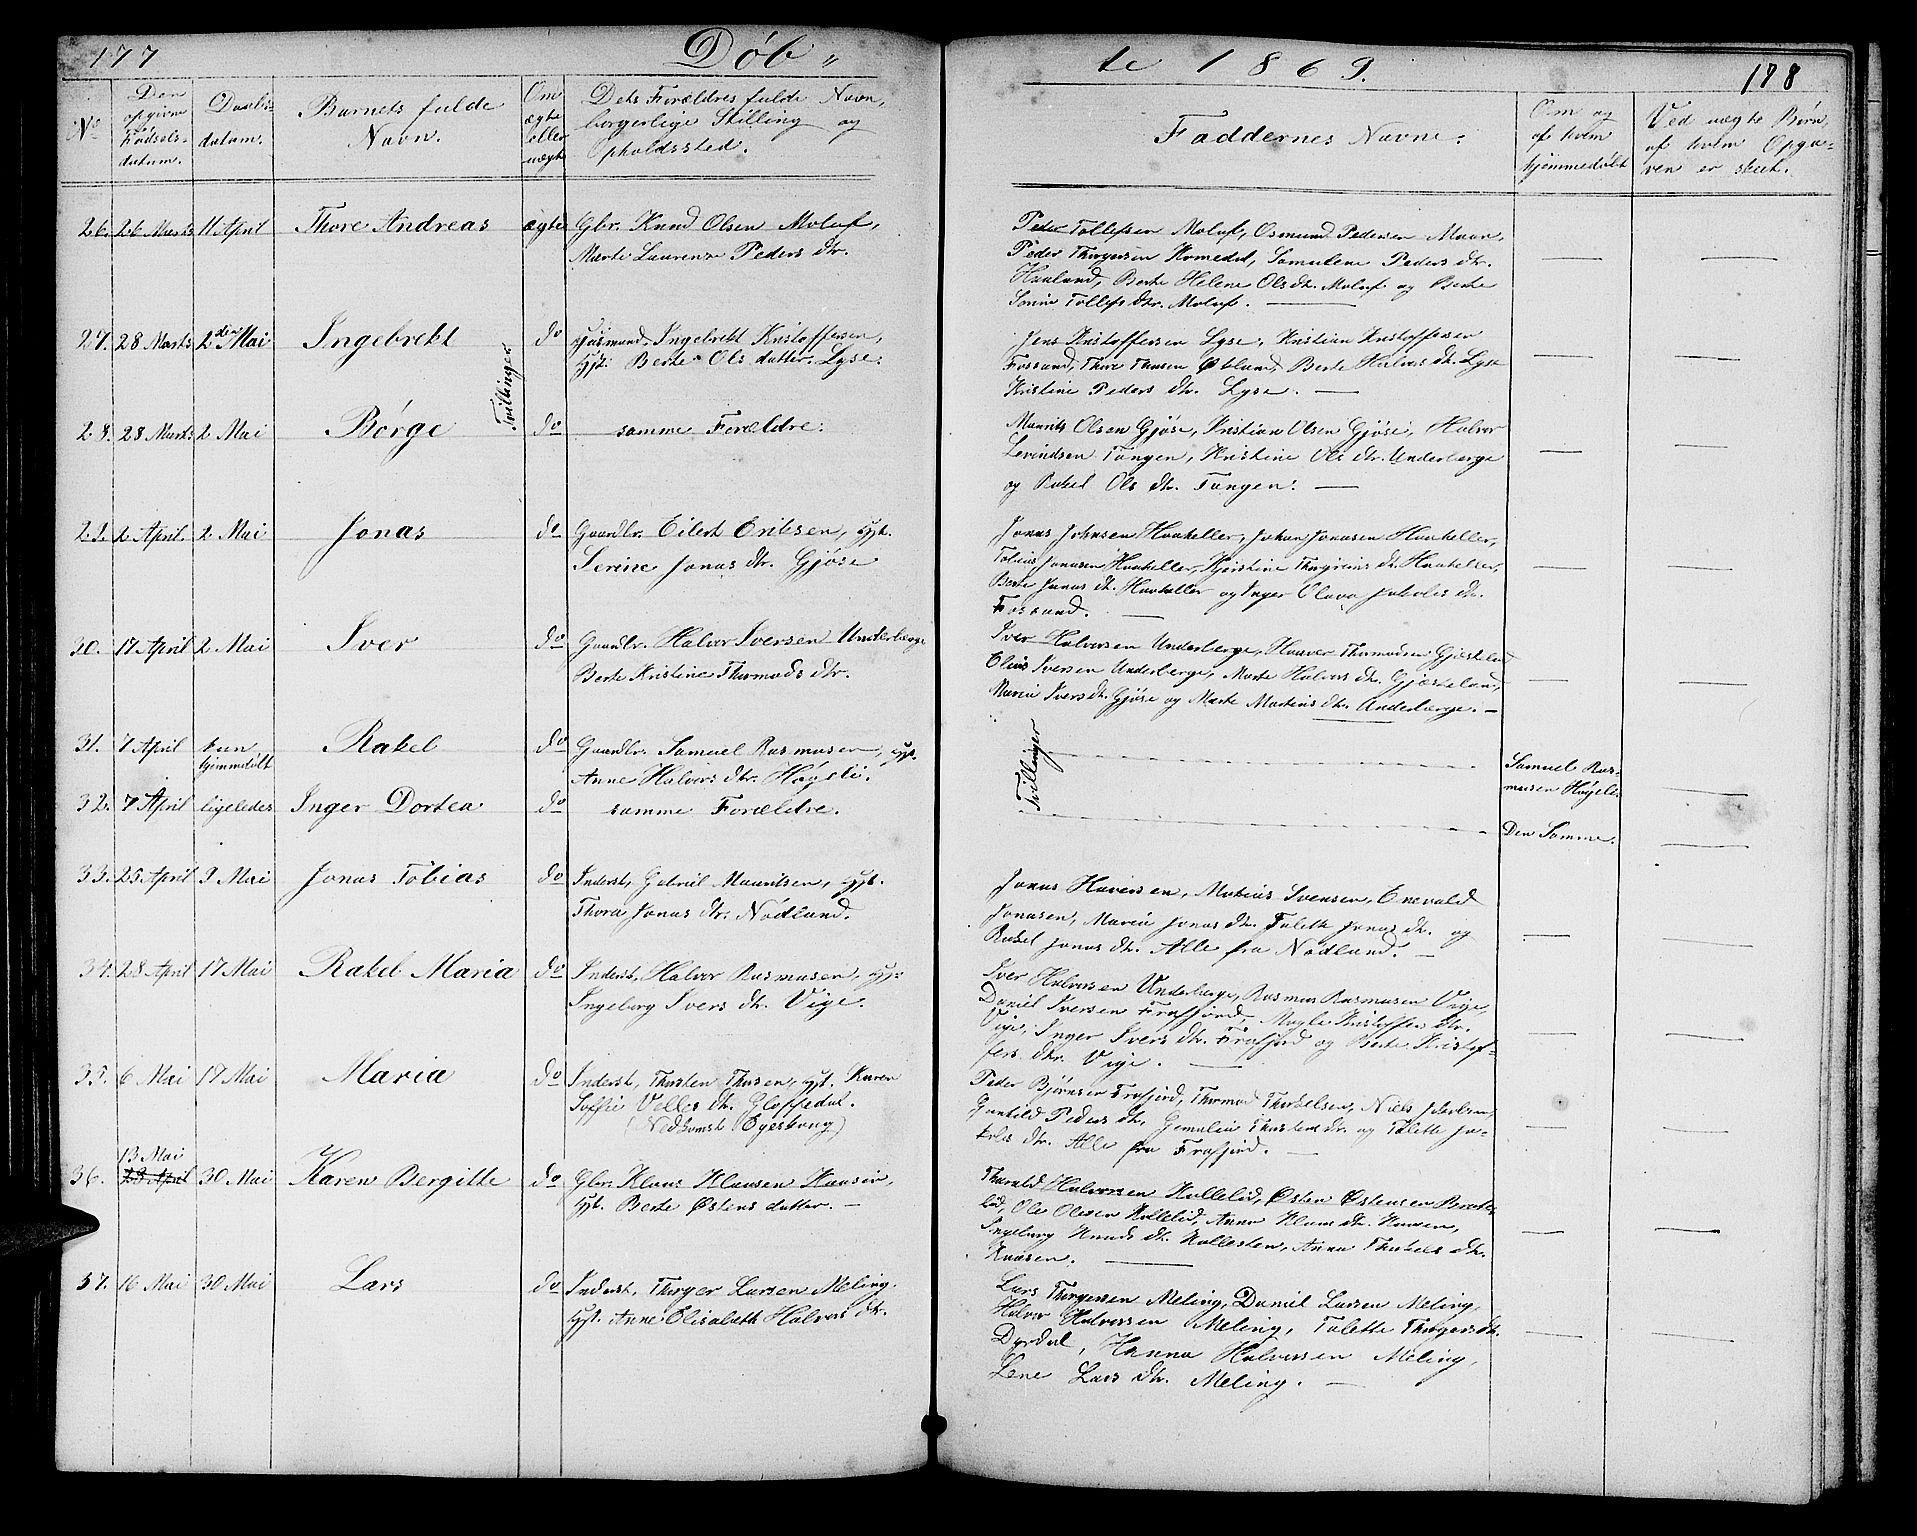 177
Døb-
te 1869.
178
No
Den opgivne Fødsels-datum.
Daabs-datum.
Barnets fulde Navn.
Om ægte eller uægte
Dets Forældres fulde Navn, borgerlige Stilling og Opholdssted.
Faddernes Navne.
Om og af hvem hjemmedøbt
Ved uægte Børn, af hvem Opga-
ven er skeet.
26. 26 Marts 11 April Thore Andreas ægte Gbr. Knud Olsen Moluf,
Marte Laurenze Peders dtr.
Peder Tollefsen Moluf, Osmund Pedersen Maan,
Peder Thorgersen Komedal, Samuline Peders dtr.
Haaland, Berte Helene Ols dtr. Moluf og Berte
Serine Tollefs dtr. Moluf.
27. 28 Marts 2den Mai Ingebrekt do Huusmand, Ingebrekt Kristoffersen,
Hst. Berte Ols datter. Lyse.
Tvillinger
Jens Kristoffersen Lyse, Kristian Kristoffersen
Fossand, Thore Thorsen Østland, Berte Halvors dtr. Lyse
Kristine Peders dtr. Lyse.
28. 28 Marts 2 Mai Børge do samme Forældre.
Maurits Olsen Gjøse, Kristian Olsen Gjøse, Halvor
Levindsen Tangen, Kristine Ols dtr. Underberge
og Rakel Ols dtr. Tangen.
29. 2 April 2 Mai Jonas do Gaardbr. Eilert Eriksen, Hst.
Serine Jonas dtr. Gjøse
Jonas Johnsen Haaheller, Johan Jonasen Haaheller,
Tobias Jonasen Haaheller, Kjirstine Thorgrims dtr. Haaheller,
Berte Jonas dtr. Haaheller og Inger Olava Jakobs dtr.
Fossand.
30. 17 April 2 Mai Iver do Gaardbr. Halvor Iversen Underberge
Berte Kristine Thormods dtr.
Iver Halvorsen Underberge, Haaver Thormodsen Gjøsteland
Elias Iversen Underberge, Marte Halvors dtr. Gjøsteland,
Maria Ivers dtr. Gjøse og Marte Martins dtr. Underberge.
31. 7 April kun hjemmedøbt Rakel do Gaardbr. Samuel Rasmusen, Hst.
Anne Halvors dtr. Høgeli.
Tvillinger
Samuel Ras-
musen Høgeli.
32. 7 April ligeledes Inger Dortea do samme Forældre.
Den Samme.
33. 25 April 9 Mai Jonas Tobias do Inderst, Gabriel Mauritsen, Hst.
Thora Jonas dtr. Nødland.
Jonas Haversen, Matias Svensen, Enevald
Jonasen, Maria Jonas dtr. Talette Jonas dtr. og
Rakel Jonas dtr. Alle fra Nødland.
34. 28 April 17 Mai Rakel Maria do Inderst, Halvor Rasmusen, Hst.
Ingeborg Ivers dtr. Vige.
Iver Halvorsen Underberge, Rasmus Rasmusen Vige,
Daniel Iversen Frafjord, Magle Kristoffer dtr.
Vige, Inger Ivers dtr. Frafjord og Berte Kristof-
fers dtr. Vige.
35. 6 Mai 17 Mai Maria do Inderst, Thorsten Thorsen, Hst. Karen
Soffie Velles dtr. Gloppedal.
(Nedkomst Ejeskong)
Peder Bjørnsen Frafjord, Thormod Thorkelsen, Niels Jakobsen,
Gunhild Peders dtr, Gemalia Thorstens dtr. og Talette Ja-
kobs dtr. Alle fra Frafjord.
36. 13 Mai 23 April 30 Mai Karen Bergitte do Gbr. Klaus Klausen Kaasen,
Hst. Berte Østens datter.
Thorvald Halvorsen Kollelid, Østen Østensen Brattelid
, Ole Olesen Kollelid, Anna Klaus dtr. Kaasen,
Ingeborg Knuds dtr. Hallesten, Anna Thorkels dtr.
Kaasen.
37. 16 Mai 30 Mai Lars do Inderst, Thorger Larsen Meling.
Hst. Anne Elisabeth Halvors dtr.
Lars Thorgersen Meling, Daniel Larsen Meling,
Halvor Halvorsen Meling, Talette Thorgers dtr.
Dyrdal, Hanna Halvorsen Meling,
Lene Lars dtr. Meling.